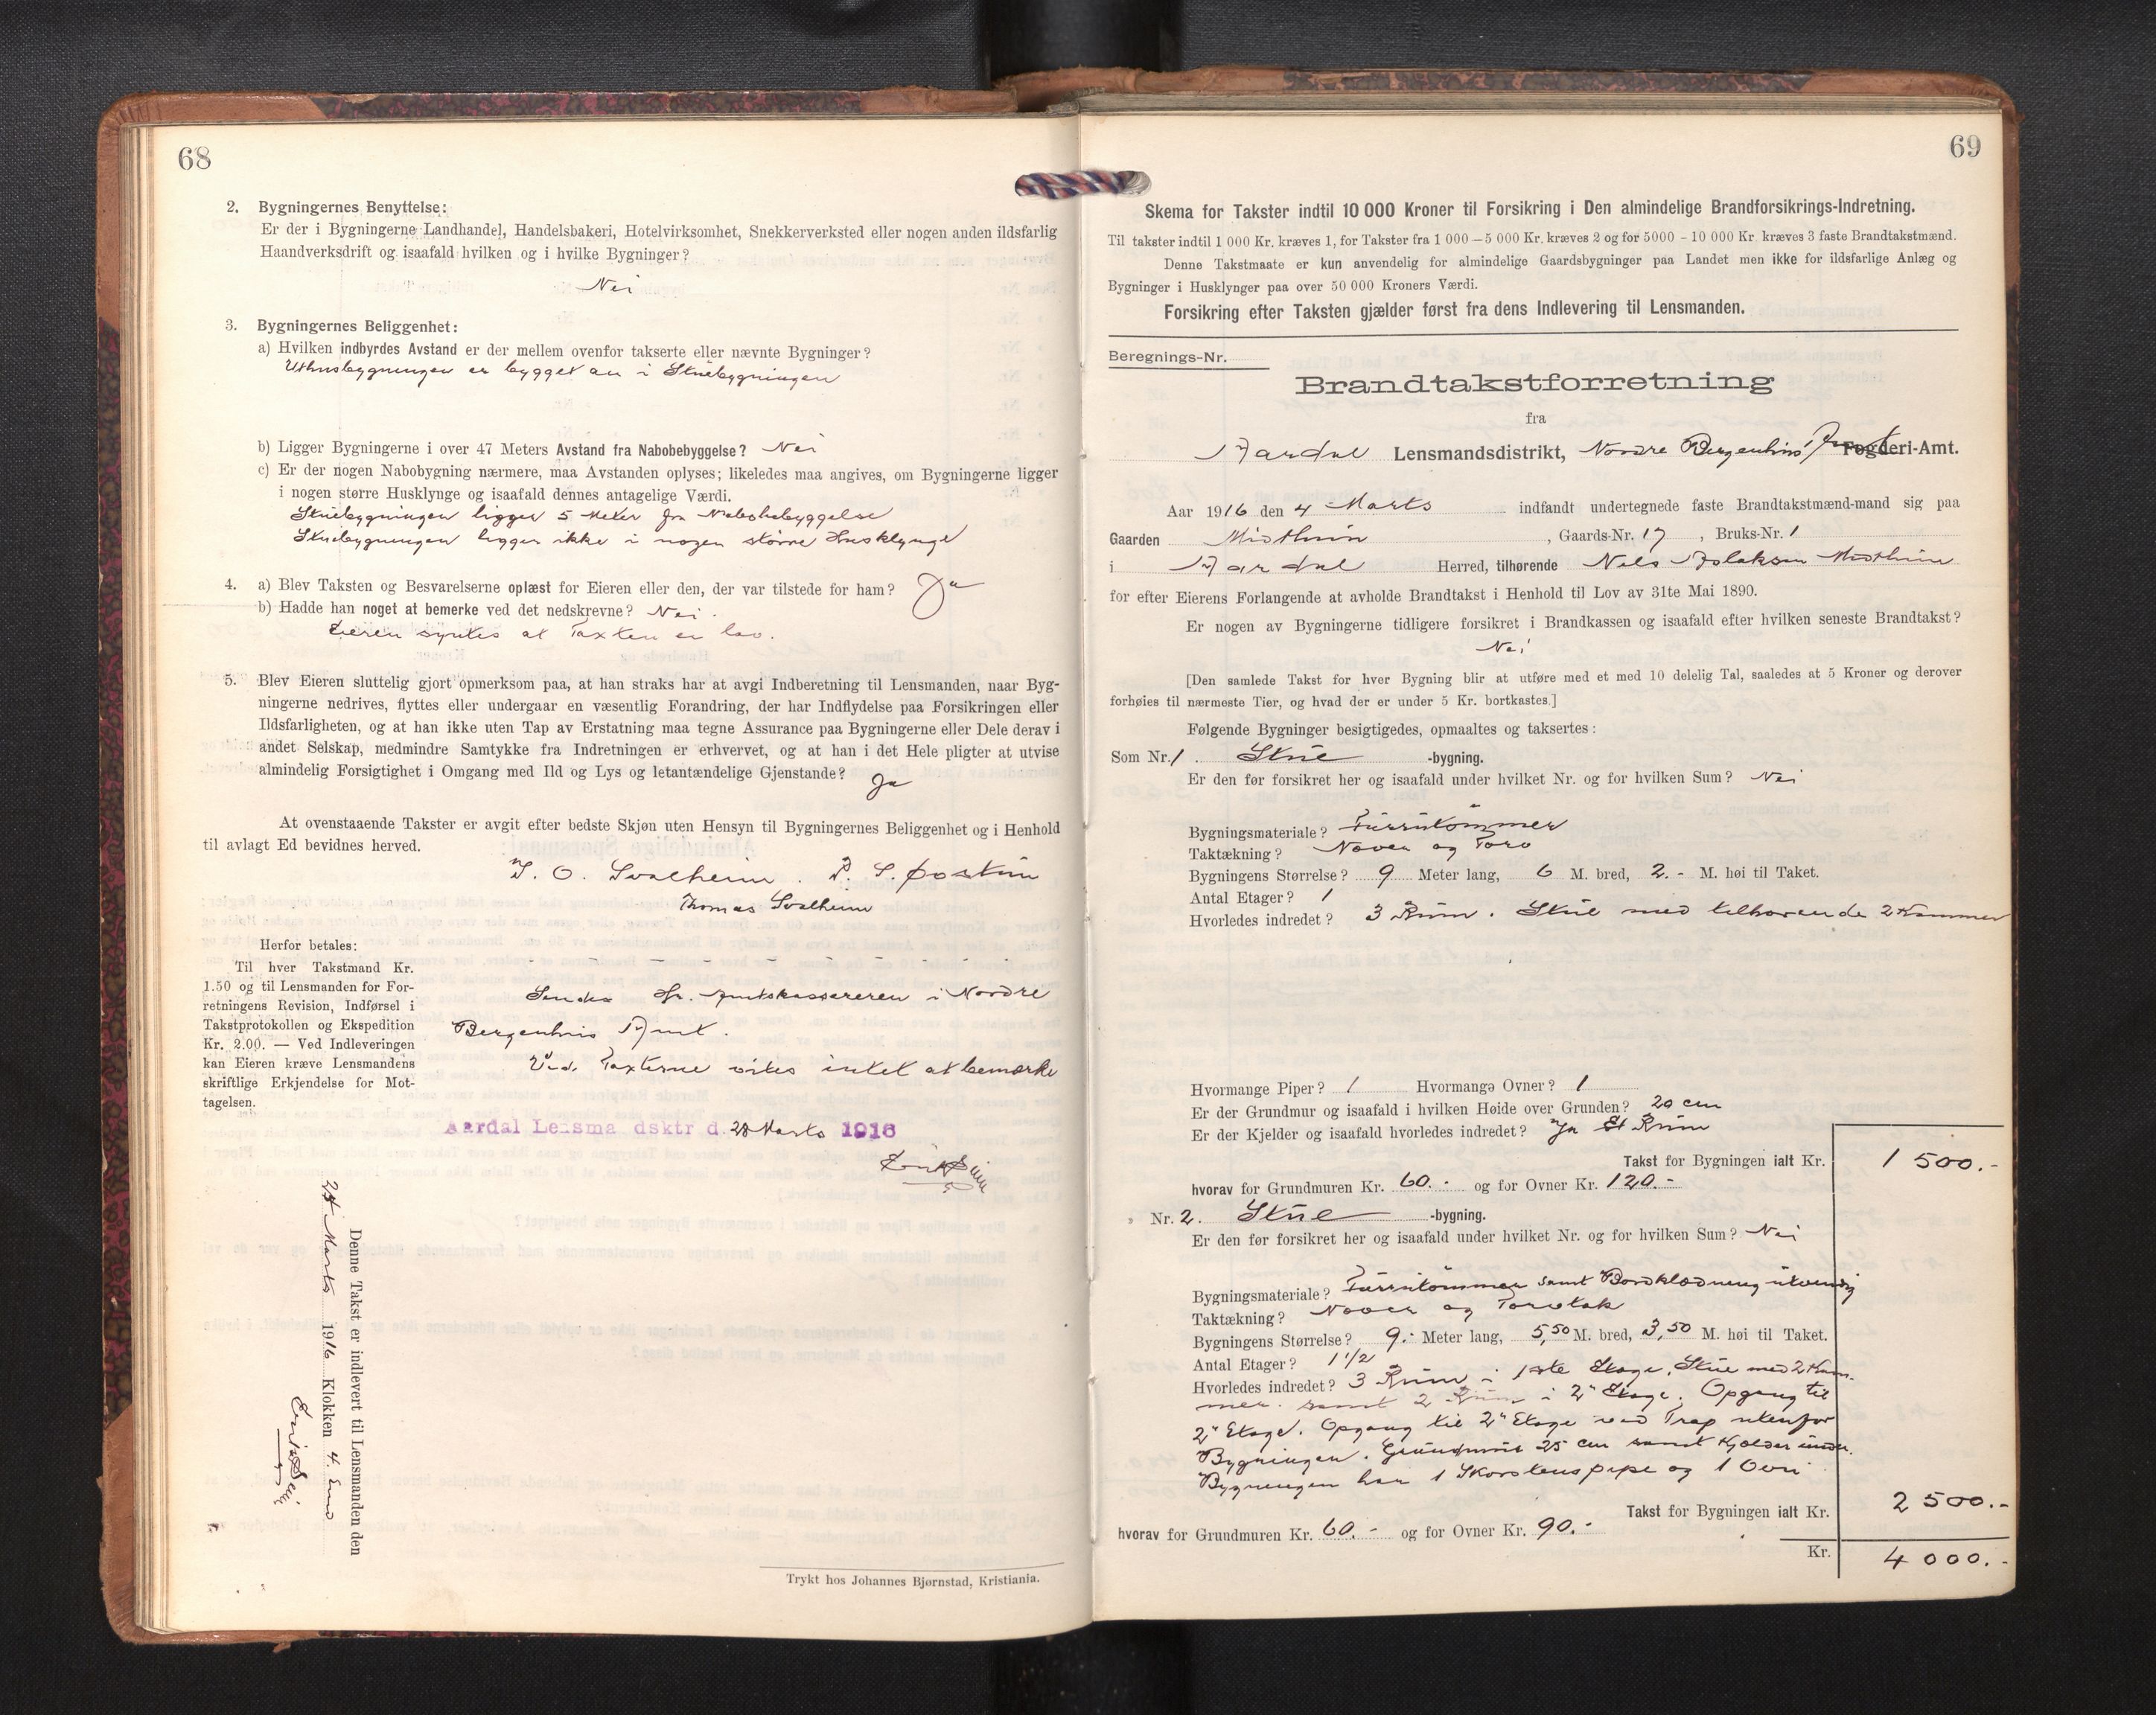 68
2. Bygningernes Benyttelse:
Er der i Bygningerne Landhandel, Handelsbakeri, Hotelvirksomhet, Snekkerverksted eller nogen anden ildsfarlig
Haandverksdrift og isaafald hvilken og i hvilke Bygninger?
Nei
3. Bygningernes Beliggenhet:
a) Hvilken indbyrdes Avstand er der mellem ovenfor takserte eller nævnte Bygninger?
Uthusbygningen er bygget an i Stuebygningen
b) Ligger Bygningerne i over 47 Meters Avstand fra Nabobebyggelse? Nei
c) Er der nogen Nabobygning nærmere, maa Avstanden oplyses; likeledes maa angives, om Bygningerne ligger
i nogen større Husklynge og isaafald dennes antagelige Værdi.
Stuebygningen ligger 5 Meter fra Nabobebyggelse
Stuebygningen ligger ikke i nogen større Husklynge
4. a) Blev Taksten og Besvarelserne oplæst for Eieren eller den, der var tilstede for ham? Ja
b) Hadde han noget at bemerke ved det nedskrevne? Nei.
Eieren syntes at Taxten er lav.
5. Blev Eieren sluttelig gjort opmerksom paa, at han straks har at avgi Indberetning til Lensmanden, naar Byg-
ningerne nedrives, flyttes eller undergaar en væsentlig Forandring, der har Indflydelse paa Forsikringen eller
Ildsfarligheten, og at han ikke uten Tap av Erstatning maa tegne Assurance paa Bygningerne eller Dele derav i
andet Selskap, medmindre Samtykke fra Indretningen er erhvervet, og at han i det Hele pligter at utvise
almindelig Forsigtighet i Omgang med Ild og Lys og letantændelige Gjenstande? Ja
At ovenstaaende Takster er avgit efter bedste Skjøn uten Hensyn til Bygningernes Beliggenhet og i Henhold
til avlagt Ed bevidnes herved.
J. O. Svalheim. P. S. Øostun
Thomas Svalheim
Herfor betales:
Til hver Takstmand Kr.
1.50 og til Lensmanden for For-
retningens Revision, Indførsel i
Takstprotokollen og Ekspedition
Kr. 2.00. — Ved Indleveringen
kan Eieren kræve Lensmandens
skriftlige Erkjendelse for Mot-
tagelsen.
Sendes Hr. Amtskassereren i Nordre
Bergenhus Amt.
Ved Taxterne vites intet at bemærke
Aardal Lensma dsktr d. 28 Marts 1916
Denne Takst er indlevert til Lensmanden den
24 Marts 1916 Klokken 4. Emd
Trykt hos Johannes Bjørnstad, Kristiania.
69
Skema for Takster indtil 10 000 Kroner til Forsikring i Den almindelige Brandforsikrings-Indretning.
Til takster indtil 1 000 Kr. kræves 1, for Takster fra 1 000 — 5 000 Kr. kræves 2 og for 5000 - 10 000 Kr. kræves 3 faste Brandtakstmænd.
Denne Takstmaate er kun anvendelig for almindelige Gaardsbygninger paa Landet men ikke for ildsfarlige Anlæg og
Bygninger i Husklynger paa over 50 000 Kroners Værdi.
Forsikring efter Taksten gjælder først fra dens Indlevering til Lensmanden.
Beregnings-Nr.
Brandtakstforretning
fra
Aardal Lensmandsdistrikt, Nordre Bergenhus Amt Fogderi-Amt.
Aar 1916 den 4 Marts indfandt undertegnede faste Brandtakstmænd-mand sig paa
Gaarden Midthun, Gaards-Nr. 17, Bruks-Nr. 1
i Aardal Herred, tilhørende Nels Aslaksen Midthun
for efter Eierens Forlangende at avholde Brandtakst i Henhold til Lov av 31te Mai 1890.
Er nogen av Bygningerne tidligere forsikret i Brandkassen og isaafald efter hvilken seneste Brandtakst?
Nei
[Den samlede Takst for hver Bygning blir at utføre med et med 10 delelig Tal, saaledes at 5 Kroner og derover
forhøies til nærmeste Tier, og hvad der er under 5 Kr. bortkastes.]
Følgende Bygninger besigtigedes, opmaaltes og taksertes:
Som Nr. 1. Stue -bygning.
Er den før forsikret her og isaafald under hvilket Nr. og for hvilken Sum? Nei
Bygningsmateriale? Furutømmer
Taktækning? Næver og Torv
Bygningens Størrelse? 9 Meter lang, 6 M. bred, 2.- M. høi til Taket.
Antal Etager? 1
Hvorledes indredet? 3 Rum. Stue med tilhørende 2 Kammer
Hvormange Piper? 1 Hvormange Ovner? 1
Er der Grundmur og isaafald i hvilken Høide over Grunden? 20 cm
Er der Kjelder og isaafald hvorledes indredet? Ja Et Rum
Takst for Bygningen ialt Kr. 1 500.-
hvorav for Grundmuren Kr. 60.- og for Ovner Kr. 120.-
" Nr. 2. Stue -bygning.
Er den før forsikret her og isaafald under hvilket Nr. og for hvilken Sum? Nei
Bygningsmateriale? Furutømmer samt Bordklædning utvendig
Taktækning? Næver og Torvtak
Bygningens Størrelse? 9.- Meter lang, 5,50 M. bred, 3,50 M. høi til Taket.
Antal Etager? 1 1/2
Hvorledes indredet? 3 Rum i 1ste Etage, Stue med 2 Kam-
mer. samt 2 Rum i 2" Etage. Opgang til
2" Etage. Opgang til 2" Etage ved Trap utenfor
Bygningen. Grundmur 25 cm samt Kjelder under.
Bygningen har 1 Skorstenspipe og 1 Ovn
Takst for Bygningen ialt Kr. 2 500.-
hvorav for Grundmuren Kr. 60.- og for Ovner Kr. 90.-
Kr. 4 000.-